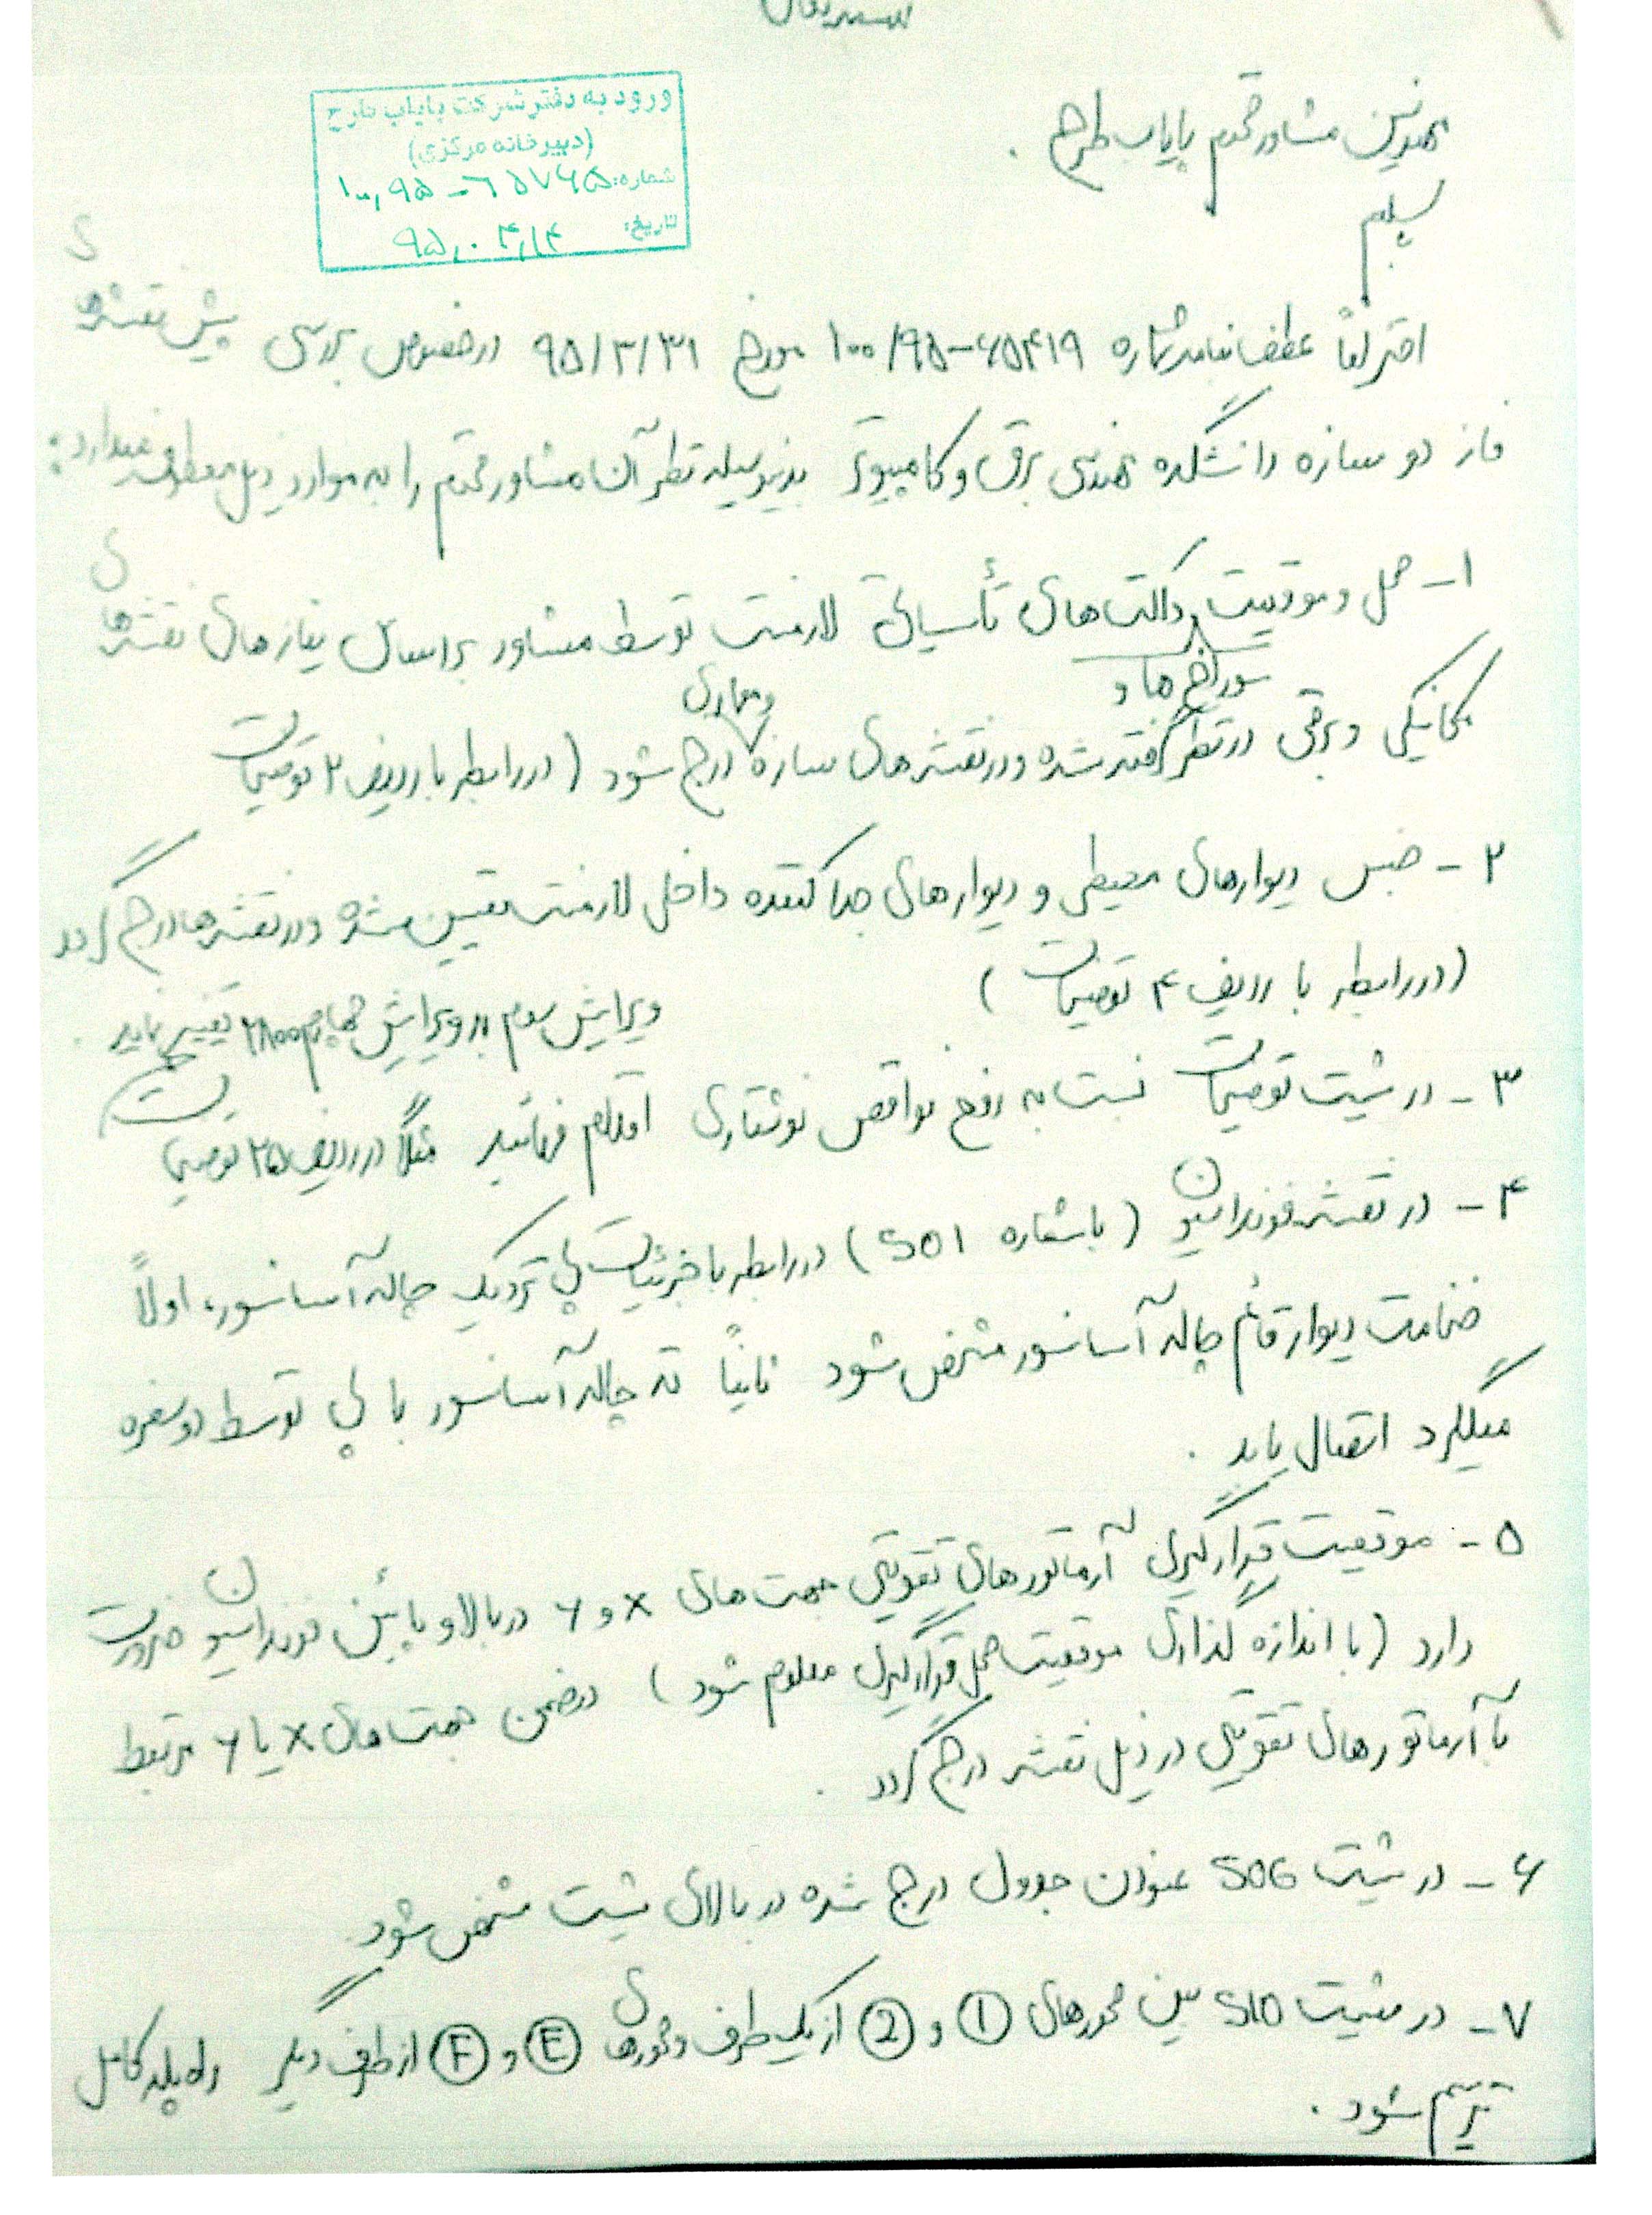 بسمه تعالی
ورود به دفتر شرکت پایاب طرح
(دبیرخانه مرکزی)
شماره: ۱۰۰,۹۵-۶۵۷۶۵
تاریخ: ۹۵,۰۴,۱۴
مهندسین مشاور محترم پایاب طرح .
با سلام
احتراماً عطف نامه شماره ۶۵۴۱۹-۱۰۰/۹۵ مورخ ۹۵/۳/۳۱ در خصوص بررسی پیش نقشه های
فاز دو سازه دانشکده مهندسی برق و کامپیوتر بدینوسیله نظر آن مشاور محترم را به موارد ذیل معطوف میدارد:
۱- محل و موقعیت داکت های تأسیساتی لازمست توسط مشاور بر اساس نیازهای نقشه های
سوراخ ها و
مکانیکی و برقی در نظر گرفته شده و در نقشه های سازه و معماری درج شود (در رابطه با ردیف ۲ توضیحات
۲- جنس دیوارهای محیطی و دیوارهای جدا کننده داخلی لازمست تعیین شده و در نقشه ها درج گردد
(در رابطه با ردیف ۴ توضیحات)
۳- در شیت توضیحات نسبت به رفع نواقص نوشتاری اقدام فرمائید مثلاً در ردیف ۲۵ توضیحات
ویرایش سوم به ویرایش چهارم ۲۸۰۰ تغییر نماید .
۴- در نقشه فونداسیون (باشماره S01) در رابطه با جزئیات پی نزدیک چاله آسانسور، اولاً
ضخامت دیوار قائم چاله آسانسور مشخص شود ثانیاً ته چاله آسانسور با پی توسط دو سفره
میلگرد اتصال یابد .
۵- موقعیت قرارگیری آرماتورهای تقویتی جهت های X و Y در بالا و پائین فونداسیون ضرورت
دارد (با اندازه گذاری موقعیت محل قرارگیری معلوم شود) در ضمن جهت های X یا Y مرتبط
با آرماتورهای تقویتی در ذیل نقشه درج گردد .
۶- در شیت S06 عنوان جدول درج شده در بالای شیت مشخص شود.
۷- در شیت S10 بین محورهای 1 و 2 از یک طرف و محورهای E و F از طرف دیگر راه پله کامل
ترسیم شود .